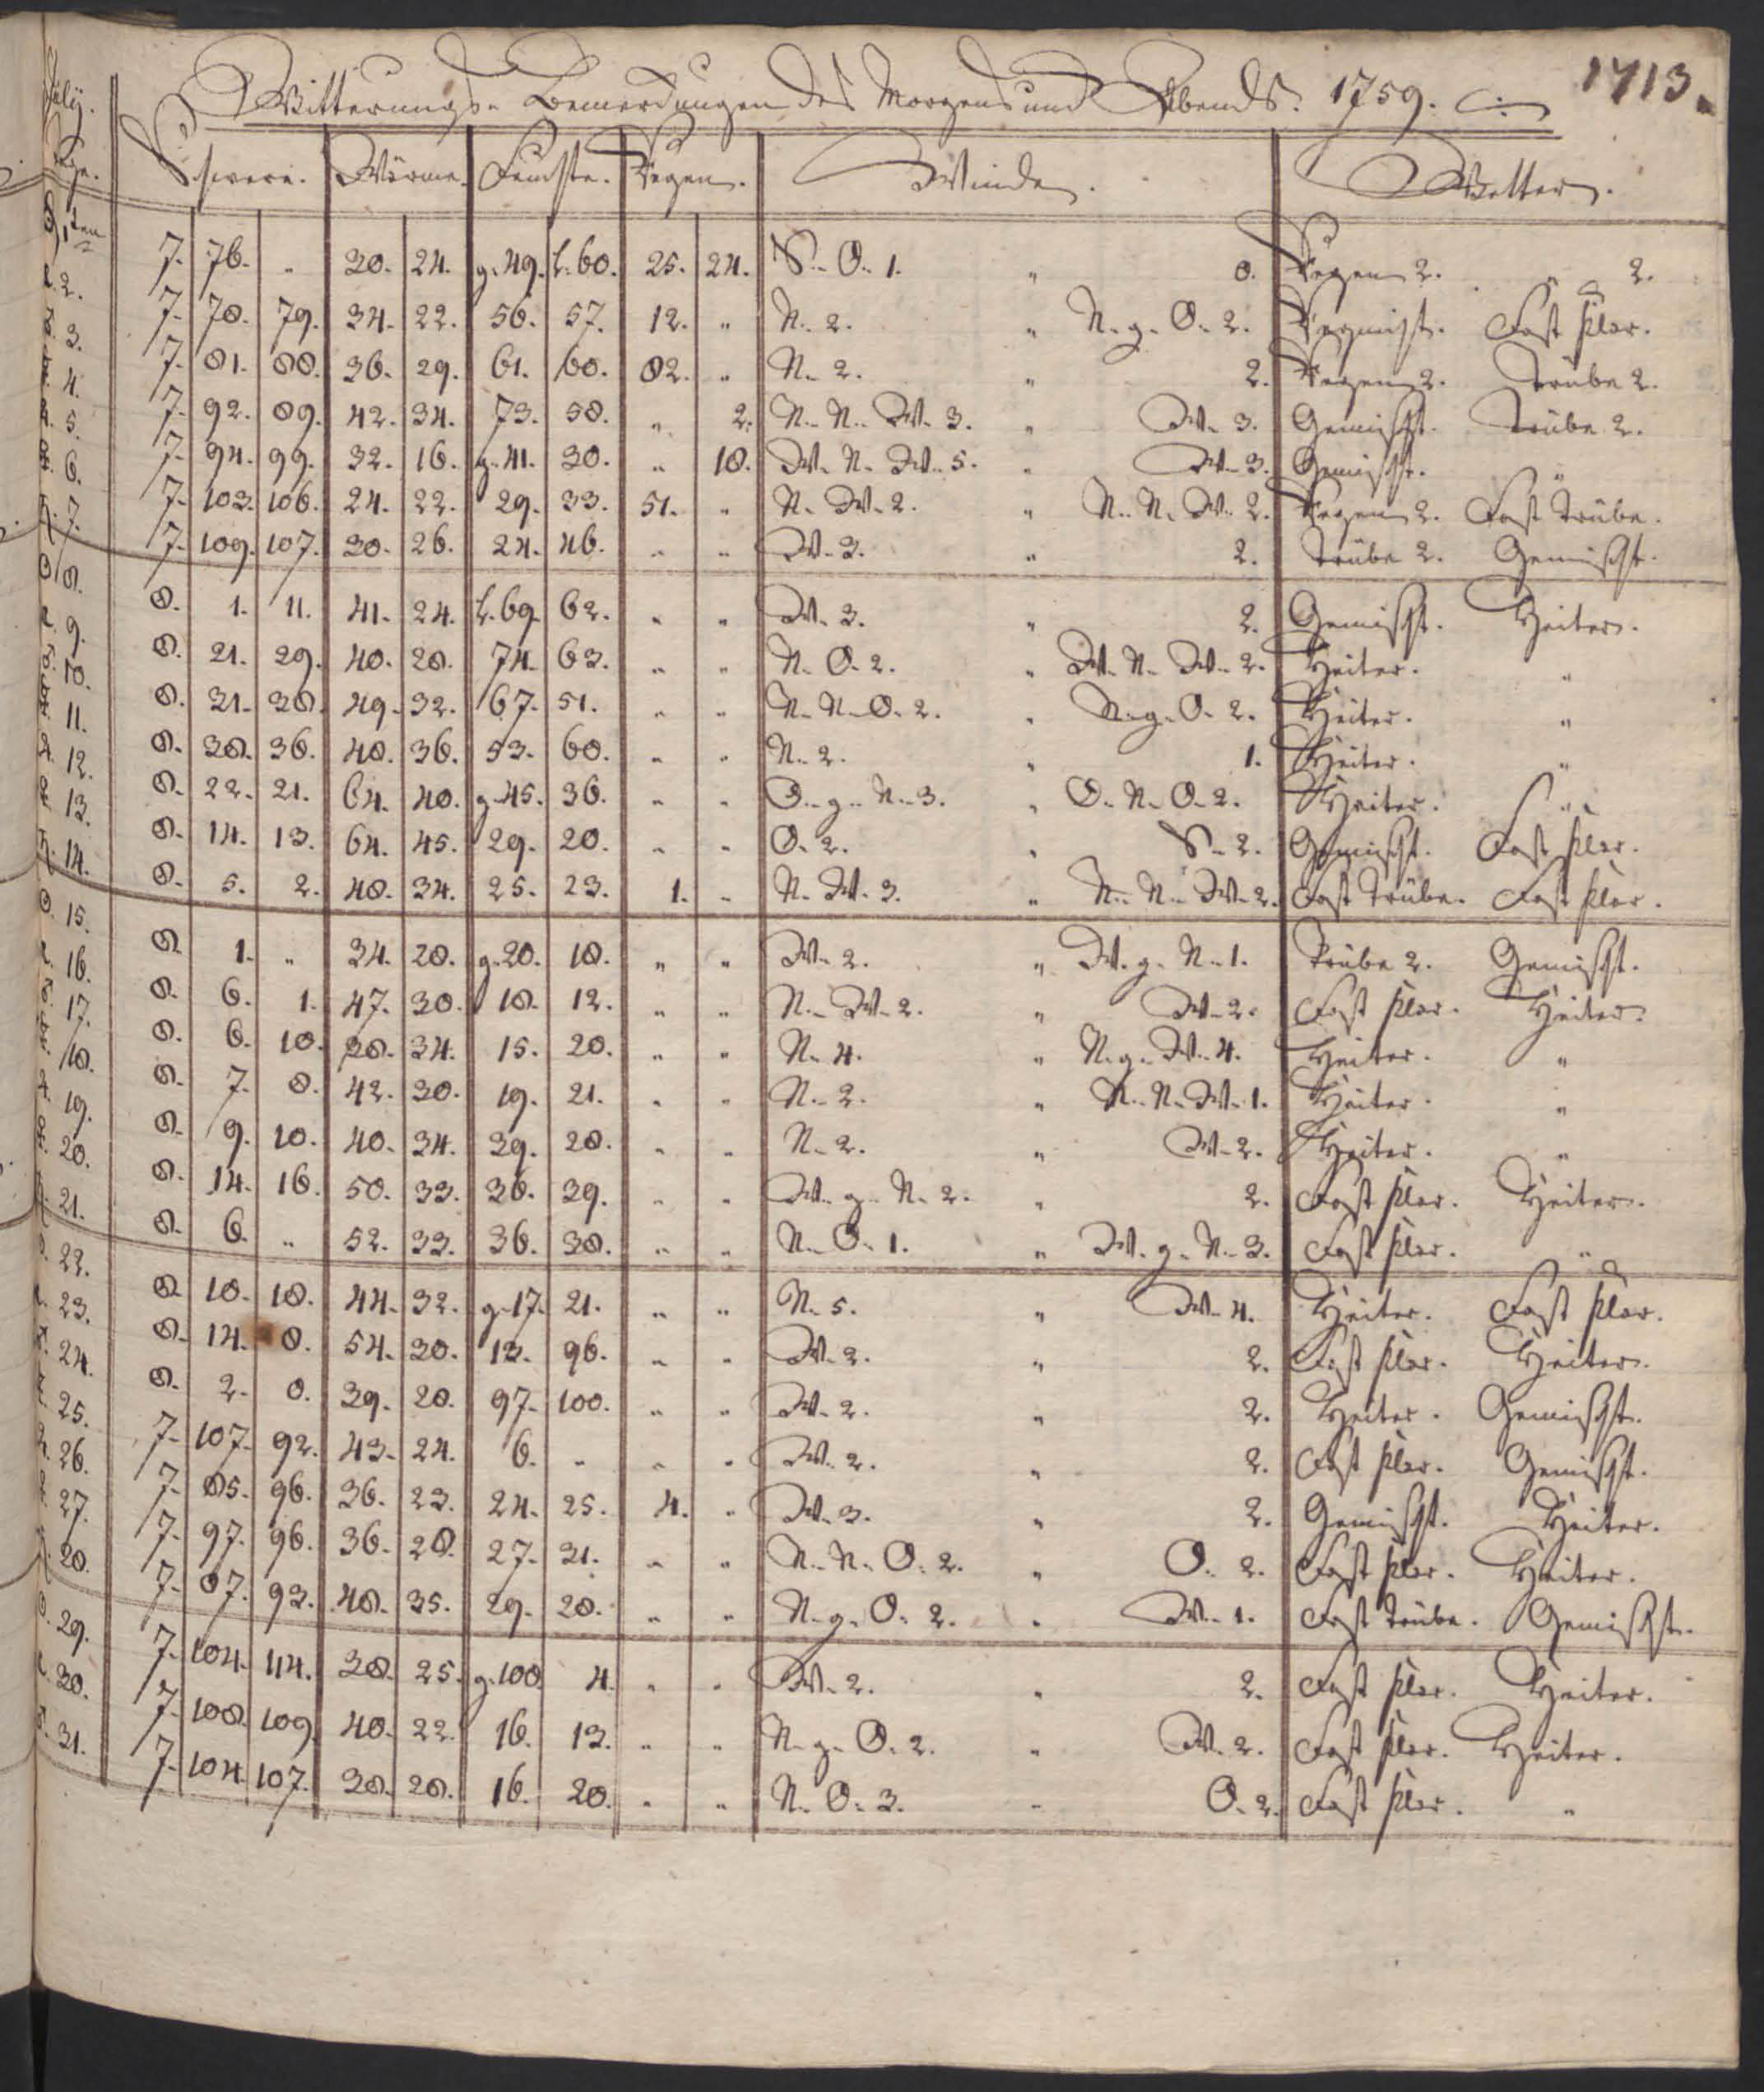 1713.
Witterungs- Bemerckungen des Morgens und Abends. 1759.
July.
Tage. Schwere. Wärme. Feuchte. Regen. Winde. Wetter.
1ten 7. 76. " 30. 24. g. 49. l. 60. 25. 24. S. O. 1. " 0. Regen 2. " 2.
2. 7. 78. 79. 34. 22. 56. 57. 12. " N. 2. " N. g. O. 2. Vermischt. Fast klar.
3. 7. 81. 88. 36. 29. 61. 60. 82. " N. 2. " 2. Regen 2. Trübe 2.
4. 7. 92. 89. 42. 34. 73. 58. " 2. N. N. W. 3. " W. 3. Gemischt. Trübe 2.
5. 7. 94. 99. 32. 16. g. 41. 30. " 18. W. N. W. 5. " W. 3. Gemischt. "
6. 7. 103. 106. 24. 22. 29. 33. 51. " N. W. 2. " N. N. W. 2. Regen 2. Fast Trübe.
7. 7. 109. 107. 30. 26. 24. 46. " " W. 3. " 2. Trübe 2. Gemischt.
8. 8. 1. 11. 41. 24. l. 69. 62. " " W. 3. " 2. Gemischt. Heiter.
9. 8. 21. 29. 40. 28. 74. 63. " " N. O. 2. " W. N. W. 2. Heiter. "
10. 8. 31. 38. 49. 32. 67. 51. " " N. N. O. 2. " N. g. O. 2. Heiter. "
11. 8. 38. 36. 48. 36. 53. 60. " " N. 2. " 1. Heiter. "
12. 8. 22. 21. 64. 40. g. 45. 36. " " O. g. N. 3. " O. N. O. 2. Heiter. "
13. 8. 14. 13. 64. 45. 29. 20. " " O. 2. " S. 2. Gemischt. Fast klar.
14. 8. 5. 2. 48. 34. 25. 23. 1. " N. W. 3. " N. N. W. 2. Fast Trübe. Fast klar.
15. 8. 1. " 34. 28. g. 20. 18. " " W. 2. " W. g. N. 1. Trübe 2. Gemischt.
16. 8. 6. 1. 47. 30. 18. 12. " " N. W. 2. " W. 2. Fast klar. Heiter.
17. 8. 6. 10. 38. 34. 15. 20. " " N. 4. " N. g. W. 4. Heiter. "
18. 8. 7. 8. 42. 30. 19. 21. " " N. 2. " N. N. W. 1. Heiter. "
19. 8. 9. 10. 40. 34. 39. 28. " " N. 2. " W. 2. Heiter. "
20. 8. 14. 16. 50. 33. 36. 39. " " W. g. N. 2. " 2. Fast klar. Heiter.
21. 8. 6. " 52. 33. 36. 38. " " N. O. 1. " W. g. N. 3. Fast klar. "
22. 8. 10. 18. 44. 32. g. 17. 21. " " N. 5. " W. 4. Heiter. Fast klar.
23. 8. 14. 8. 54. 30. 13. 96. " " W. 2. " 2. Fast klar. Heiter.
24. 8. 2. 0. 39. 20. 97. 100. " " W. 2. " 2. Heiter. Gemischt.
25. 7. 107. 92. 43. 24. 6. " " " W. 2. " 2. Fast klar. Gemischt.
26. 7. 85. 96. 36. 23. 24. 25. 4. " W. 3. " 2. Gemischt. Heiter.
27. 7. 97. 96. 36. 28. 27. 31. " " N. N. O. 2. " O. 2. Fast klar. Heiter.
28. 7. 87. 93. 48. 35. 29. 28. " " N. g. O. 2. " W. 1. Fast Trübe. Gemischt.
29. 7. 104. 114. 38. 25. g. 100. 4. " " W. 2. " 2. Fast klar. Heiter.
30. 7. 108. 109. 40. 22. 16. 13. " " N. g. O. 2. " W. 2. Fast klar. Heiter.
31. 7. 104. 107. 38. 28. 16. 20. " " N. O. 3. " O. 2. Fast klar. "